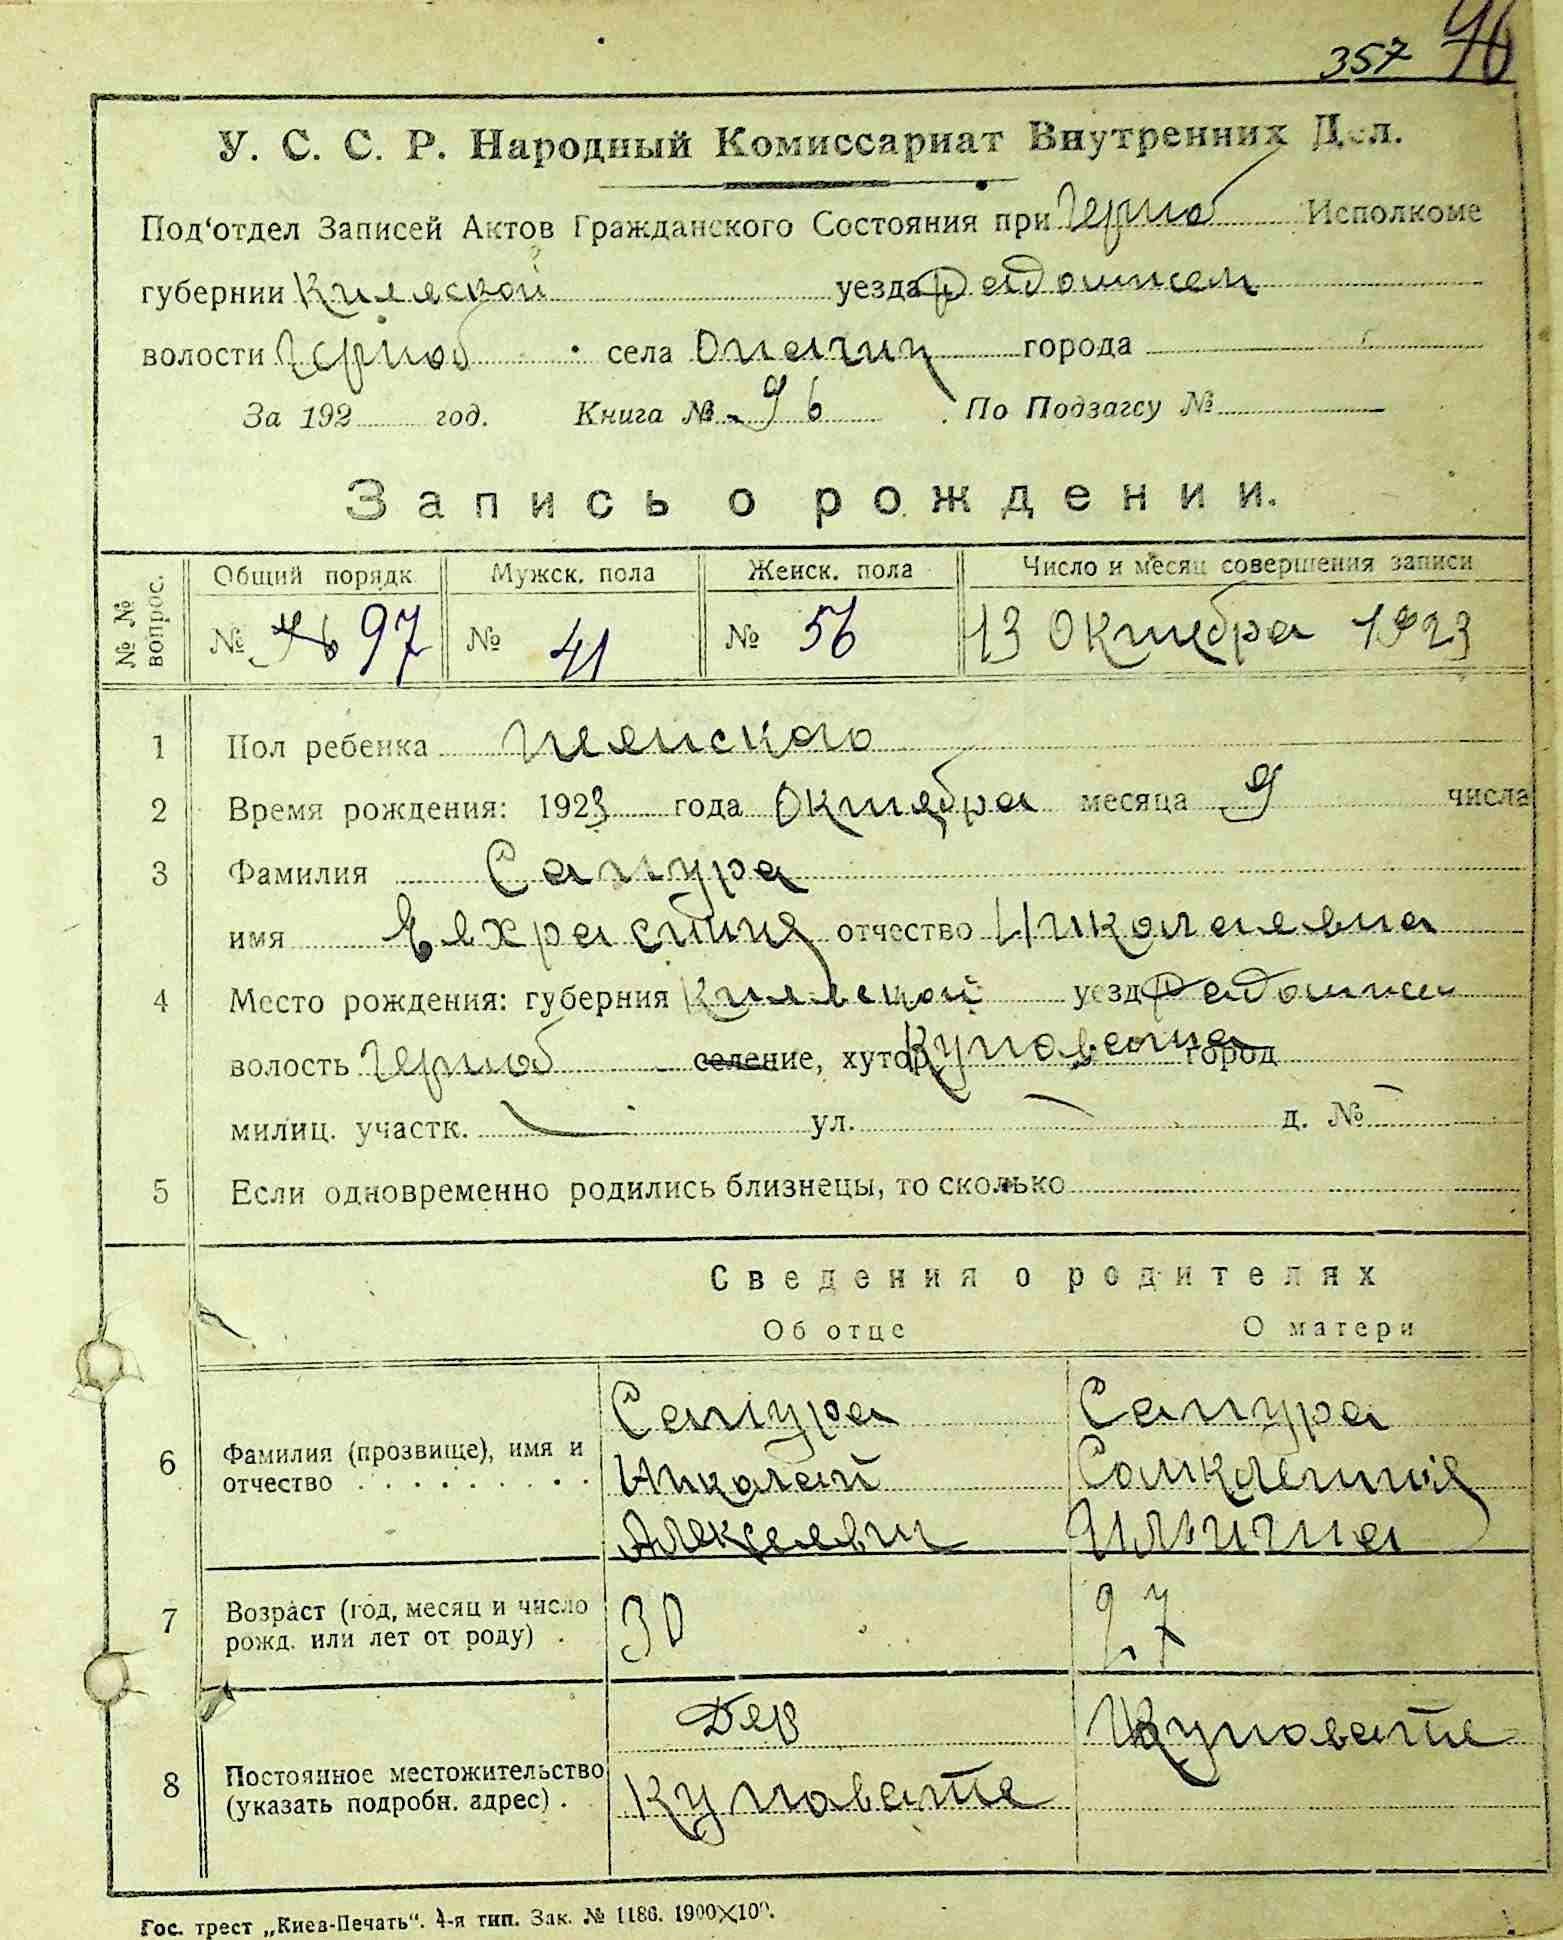 357 96
У. С. С. Р. Народный Комиссариат Внутренних Дел.
Под‘отдел Записей Актов Гражданского Состояния при Черноб Исполкоме
губернии Киевской уезда Радомысл
волости Черноб села Опачич города
За 192 год. Книга № 96 По Подзагсу №
Запись о рождении.
№ № вопрос. Общий порядк Мужск. пола Женск. пола Число и месяц совершения записи
№ 96 97 № 41 № 56 13 Октября 1923
1 Пол ребенка Женского
2 Время рождения: 1923 года Октября месяца 9 числа
3 Фамилия Сапура
имя Евхрастиния отчество Николаевна
4 Место рождения: губерния Киевской уезд Радомысл
волость Черноб селение, хутор Куповатое город
милиц. участк. ул. д. №
5 Если одновременно родились близнецы, то сколько
Сведения о родителях
Об отце О матери
6 Фамилия (прозвище), имя и отчество
Сапура Сапура
Николай Соломония
Алексеевич Ильична
7 Возраст (год, месяц и число рожд. или лет от роду)
30 27
8 Постоянное местожительство (указать подробн. адрес)
Дер Куповате
Куповате
Гос. трест „Киев-Печать“. 4-я тип. Зак. № 1186. 1900×100.